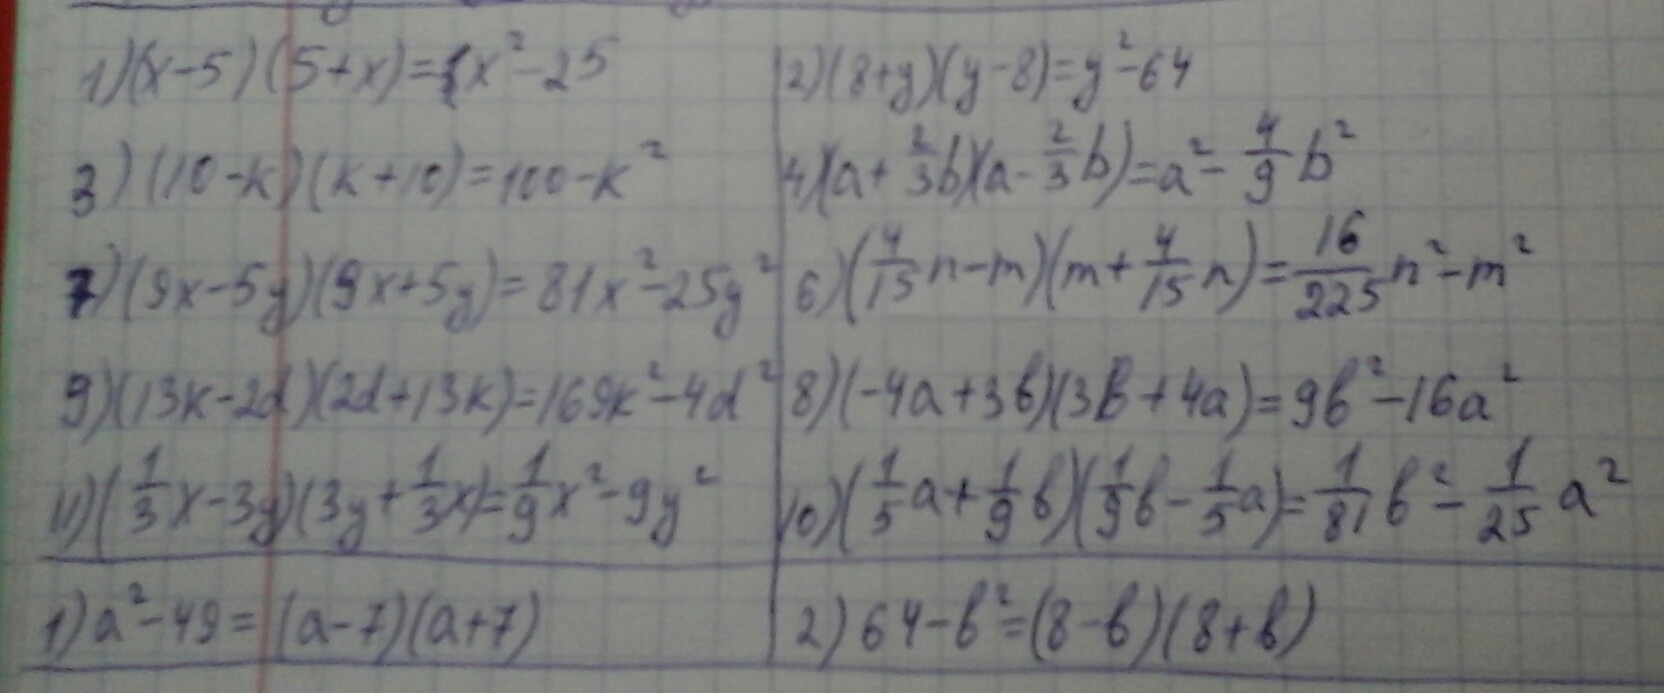 1)(x-5)(5+x)=x²-25
2)(8+y)(y-8)=y²-64
3)(10-k)(k+10)=100-k²
4)(a+2/3b)(a-2/3b)=a²-4/9b²
7)(9x-5y)(9x+5y)=81x²-25y²
6)(4/15n-m)(m+4/15n)=16/225n²-m²
9)(13k-2d)(2d+13k)=169k²-4d²
8)(-4a+3b)(3b+4a)=9b²-16a²
11)(1/3x-3y)(3y+1/3x)=1/9x²-9y²
10)(1/5a+1/9b)(1/9b-1/5a)=1/81b²-1/25a²
1)a²-49=(a-7)(a+7)
2)64-b²=(8-b)(8+b)